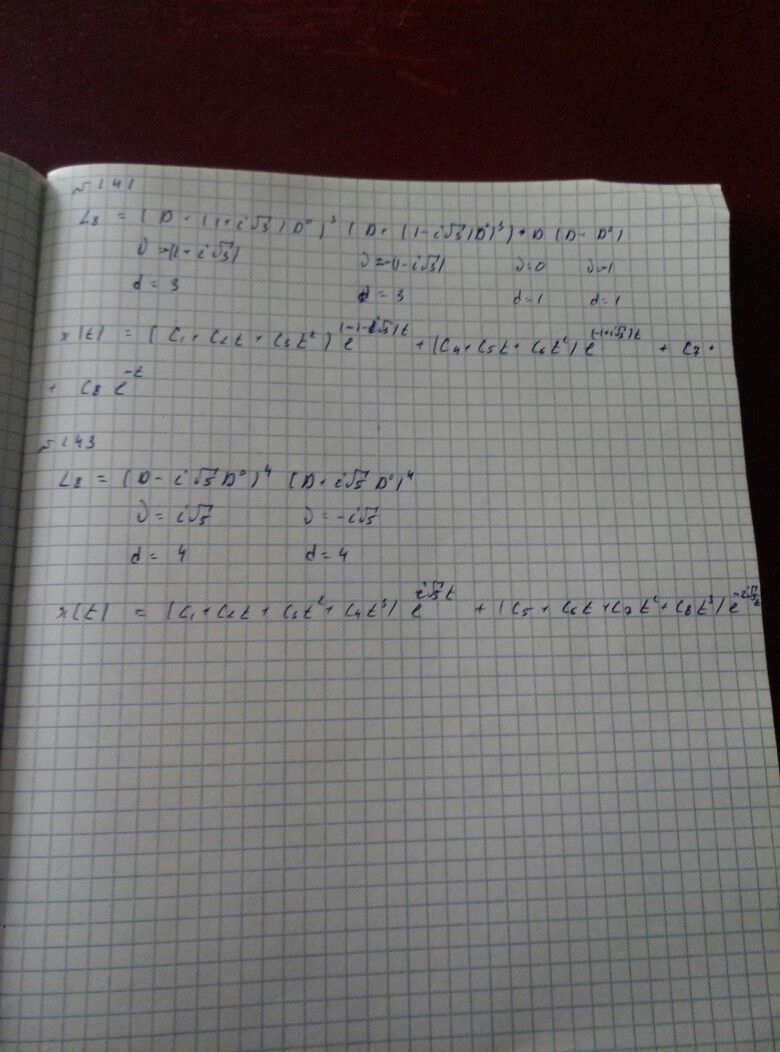 № 141
L₈ = (D + (1+i√3)D⁰)³ (D + (1-i√3)D⁰)³) + D (D - D⁰)
ν = -(1+i√3) ν = -(1-i√3) ν=0 ν=-1
d = 3 d = 3 d=1 d=1
x(t) = (C₁ + C₂t + C₃t²) e^(-1-i√3)t + (C₄ + C₅t + C₆t²) e^(-1+i√3)t + C₇ +
+ C₈ e^-t
№ 143
L₈ = (D - i√5 D⁰)⁴ (D + i√5 D⁰)⁴
ν = i√5 ν = -i√5
d = 4 d = 4
x(t) = (C₁ + C₂t + C₃t² + C₄t³) e^i√5t + (C₅ + C₆t + C₇t² + C₈t³) e^-i√5t